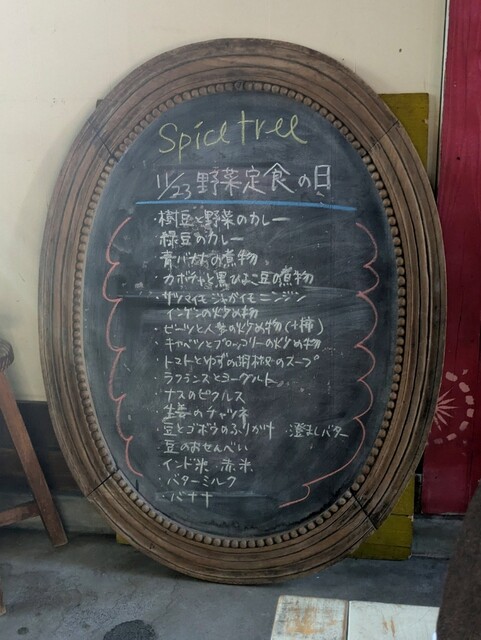 Spice tree
11/23 野菜定食の日
・樹豆と野菜のカレー
・緑豆のカレー
・青バナナの煮物
・カボチャと黒ひよこ豆の煮物
・サツマイモ ジャガイモ ニンジン
インゲンの炒め物
・ビーツと人参の炒め物(+柿)
・キャベツとブロッコリーの炒め物
・トマトとゆず胡椒のスープ
・ラフランスとヨーグルト
・ナスのピクルス
・生姜のチャツネ
・豆とゴボウのふりかけ ・澄ましバター
・豆のおせんべい
・インド米 赤米
・バターミルク
・バナナ